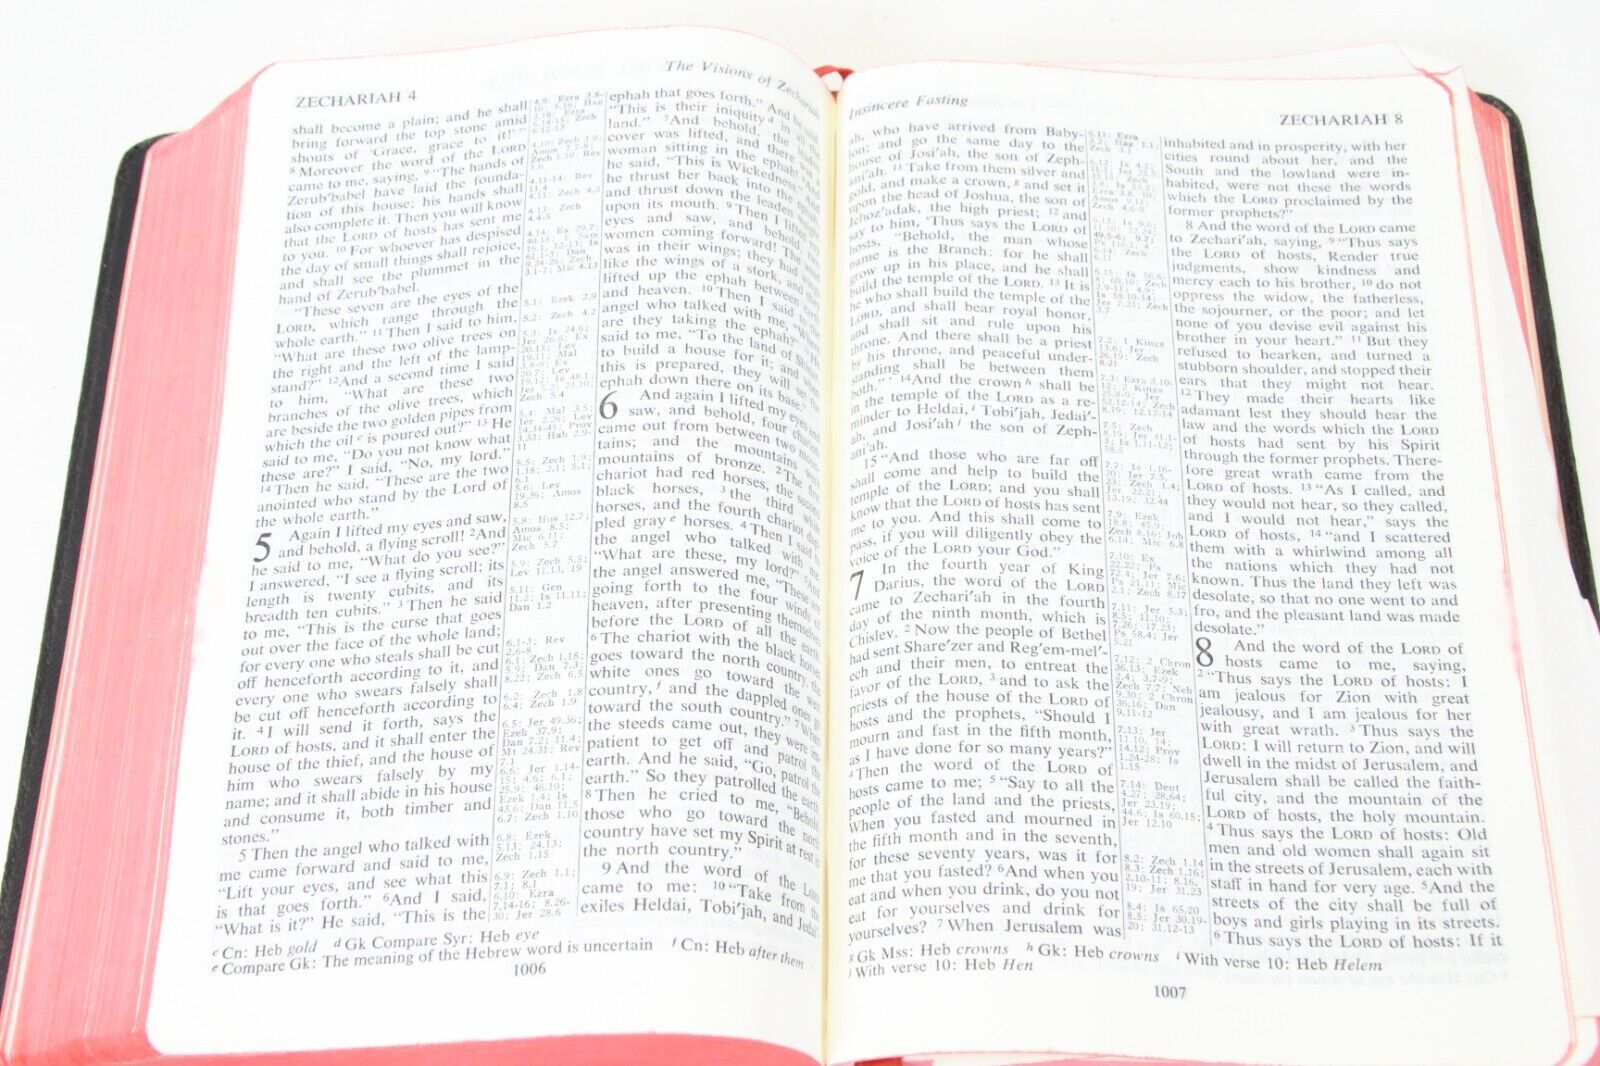 ZECHARIAH 4
The Visions of Zechariah
shall become a plain; and he shall
bring forward the top stone amid
shouts of 'Grace, grace to it!' "
8 Moreover the word of the LORD
came to me, saying, 9 "The hands of
Zerub'babel have laid the founda-
tion of this house; his hands shall
also complete it. Then you will know
that the LORD of hosts has sent me
to you. 10 For whoever has despised
the day of small things shall rejoice,
and shall see the plummet in the
hand of Zerub'babel.
"These seven are the eyes of the
LORD, which range through the
whole earth." 11 Then I said to him,
"What are these two olive trees on
the right and the left of the lamp-
stand?" 12 And a second time I said
to him, "What are these two
branches of the olive trees, which
are beside the two golden pipes from
which the oil c is poured out?" 13 He
said to me, "Do you not know what
these are?" I said, "No, my lord."
14 Then he said, "These are the two
anointed who stand by the Lord of
the whole earth."
5 Again I lifted my eyes and saw,
and behold, a flying scroll! 2 And
he said to me, "What do you see?"
I answered, "I see a flying scroll; its
length is twenty cubits, and its
breadth ten cubits." 3 Then he said
to me, "This is the curse that goes
out over the face of the whole land;
for every one who steals shall be cut
off henceforth according to it, and
every one who swears falsely shall
be cut off henceforth according to
it. 4 I will send it forth, says the
LORD of hosts, and it shall enter the
house of the thief, and the house of
him who swears falsely by my
name; and it shall abide in his house
and consume it, both timber and
stones."
5 Then the angel who talked with
me came forward and said to me,
"Lift your eyes, and see what this
is that goes forth." 6 And I said,
"What is it?" He said, "This is the
5.1: Ezek 2.9
5.2: Zech 4.2
5.11: Gen
11.2; Is 11.11;
Dan 1.2
6.1-3: Rev
6.2-8
6.1: Zech 1.18;
6.2: Zech 1.8
6.4: Zech 1.9
6.7: Zech 1.10
6.8: Ezek
5.13; 24.13;
Zech 1.15
6.9: Zech 1.1;
7.1; 8.1
6.10: Ezra
7.14-16; 8.26-
30; Jer 28.6
ephah that goes forth." And he said,
"This is their iniquity d in all the
land." 7 And behold, the leaden
cover was lifted, and there was a
woman sitting in the ephah! 8 And
he said, "This is Wickedness." And
he thrust her back into the ephah,
and thrust down the leaden weight
upon its mouth. 9 Then I lifted my
eyes and saw, and behold, two
women coming forward! The wind
was in their wings; they had wings
like the wings of a stork, and they
lifted up the ephah between earth
and heaven. 10 Then I said to the
angel who talked with me, "Where
are they taking the ephah?" 11 He
said to me, "To the land of Shinar,
to build a house for it; and when
this is prepared, they will set the
ephah down there on its base."
6 And again I lifted my eyes and
saw, and behold, four chariots
came out from between two moun-
tains; and the mountains were
mountains of bronze. 2 The first
chariot had red horses, the second
black horses, 3 the third white
horses, and the fourth chariot dap-
pled gray e horses. 4 Then I said to
the angel who talked with me,
"What are these, my lord?" 5 And
the angel answered me, "These are
going forth to the four winds of
heaven, after presenting themselves
before the LORD of all the earth.
6 The chariot with the black horses
goes toward the north country, the
white ones go toward the west
country, f and the dappled ones go
toward the south country." 7 When
the steeds came out, they were im-
patient to get off and patrol the
earth. And he said, "Go, patrol the
earth." So they patrolled the earth.
8 Then he cried to me, "Behold,
those who go toward the north
country have set my Spirit at rest in
the north country."
9 And the word of the LORD
came to me: 10 "Take from the
exiles Heldai, Tobi'jah, and Jedai'-
c Cn: Heb gold d Gk Compare Syr: Heb eye
e Compare Gk: The meaning of the Hebrew word is uncertain f Cn: Heb after them
1006
Insincere Fasting
ZECHARIAH 8
ah, who have arrived from Baby-
lon; and go the same day to the
house of Josi'ah, the son of Zeph-
ani'ah. 11 Take from them silver and
gold, and make a crown, g and set it
upon the head of Joshua, the son of
Jehoz'adak, the high priest; 12 and
say to him, 'Thus says the LORD of
hosts, "Behold, the man whose
name is the Branch: for he shall
grow up in his place, and he shall
build the temple of the LORD. 13 It is
he who shall build the temple of the
LORD, and shall bear royal honor,
and shall sit and rule upon his
throne. And there shall be a priest
by his throne, and peaceful under-
standing shall be between them
both." ' 14 And the crown h shall be
in the temple of the LORD as a re-
minder to Heldai, i Tobi'jah, Jedai'-
ah, and Josi'ah j the son of Zeph-
ani'ah.
15 "And those who are far off
shall come and help to build the
temple of the LORD; and you shall
know that the LORD of hosts has sent
me to you. And this shall come to
pass, if you will diligently obey the
voice of the LORD your God."
7 In the fourth year of King
Darius, the word of the LORD
came to Zechari'ah in the fourth
day of the ninth month, which is
Chislev. 2 Now the people of Bethel
had sent Share'zer and Reg'em-mel'-
ech and their men, to entreat the
favor of the LORD, 3 and to ask the
priests of the house of the LORD of
hosts and the prophets, "Should I
mourn and fast in the fifth month,
as I have done for so many years?"
4 Then the word of the LORD of
hosts came to me; 5 "Say to all the
people of the land and the priests,
When you fasted and mourned in
the fifth month and in the seventh,
for these seventy years, was it for
me that you fasted? 6 And when you
eat and when you drink, do you not
eat for yourselves and drink for
yourselves? 7 When Jerusalem was
7.13: Jer
11.10, 14;
14.12; Prov
1.24-28; Is
1.15
7.14: Deut
4.27; 28.64;
Jer 23.19;
44.6; Is 60.15;
Jer 12.10
8.2: Zech 1.14
8.3: Zech 1.16;
2.10-11; 8.16,
19; Jer 31.23
8.4: Is 65.20
8.5: Jer 30.19-
20; 31.12-13
inhabited and in prosperity, with her
cities round about her, and the
South and the lowland were in-
habited, were not these the words
which the LORD proclaimed by the
former prophets?"
8 And the word of the LORD came
to Zechari'ah, saying, 9 "Thus says
the LORD of hosts, Render true
judgments, show kindness and
mercy each to his brother, 10 do not
oppress the widow, the fatherless,
the sojourner, or the poor; and let
none of you devise evil against his
brother in your heart." 11 But they
refused to hearken, and turned a
stubborn shoulder, and stopped their
ears that they might not hear.
12 They made their hearts like
adamant lest they should hear the
law and the words which the LORD
of hosts had sent by his Spirit
through the former prophets. There-
fore great wrath came from the
LORD of hosts. 13 "As I called, and
they would not hear, so they called,
and I would not hear," says the
LORD of hosts, 14 "and I scattered
them with a whirlwind among all
the nations which they had not
known. Thus the land they left was
desolate, so that no one went to and
fro, and the pleasant land was made
desolate."
8 And the word of the LORD of
hosts came to me, saying,
2 "Thus says the LORD of hosts: I
am jealous for Zion with great
jealousy, and I am jealous for her
with great wrath. 3 Thus says the
LORD: I will return to Zion, and will
dwell in the midst of Jerusalem, and
Jerusalem shall be called the faith-
ful city, and the mountain of the
LORD of hosts, the holy mountain.
4 Thus says the LORD of hosts: Old
men and old women shall again sit
in the streets of Jerusalem, each with
staff in hand for very age. 5 And the
streets of the city shall be full of
boys and girls playing in its streets.
6 Thus says the LORD of hosts: If it
g Gk Mss: Heb crowns h Gk: Heb crowns i With verse 10: Heb Helem
j With verse 10: Heb Hen
1007